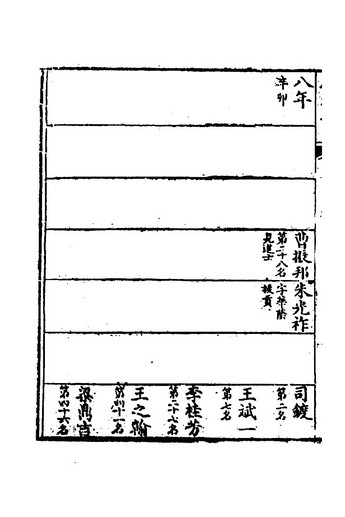 八年
辛卯
曹振邦
第二十八名
見進士
朱光祚
字
拔貢
司鐙
第二名
王斌一
第七名
李桂芳
第二十七名
王之翰
第四十一名
梁鼎吉
第四十六名